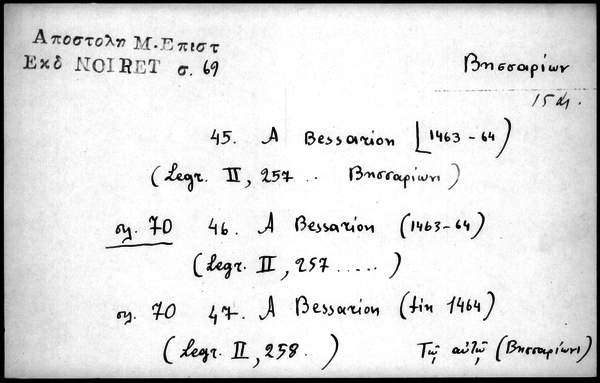 Αποστολη Μ. Επιστ
Εκδ NOIRET σ. 69
Βησσαρίων
15 αι.
45. A Bessarion [1463-64)
(Legr. II, 257 .. Βησσαρίωνι)
σελ. 70 46. A Bessarion (1463-64)
(Legr. II, 257 .....)
σελ. 70 47. A Bessarion (fin 1464)
(Legr. II, 258 .) Τῷ αὐτῷ (Βησσαρίωνι)